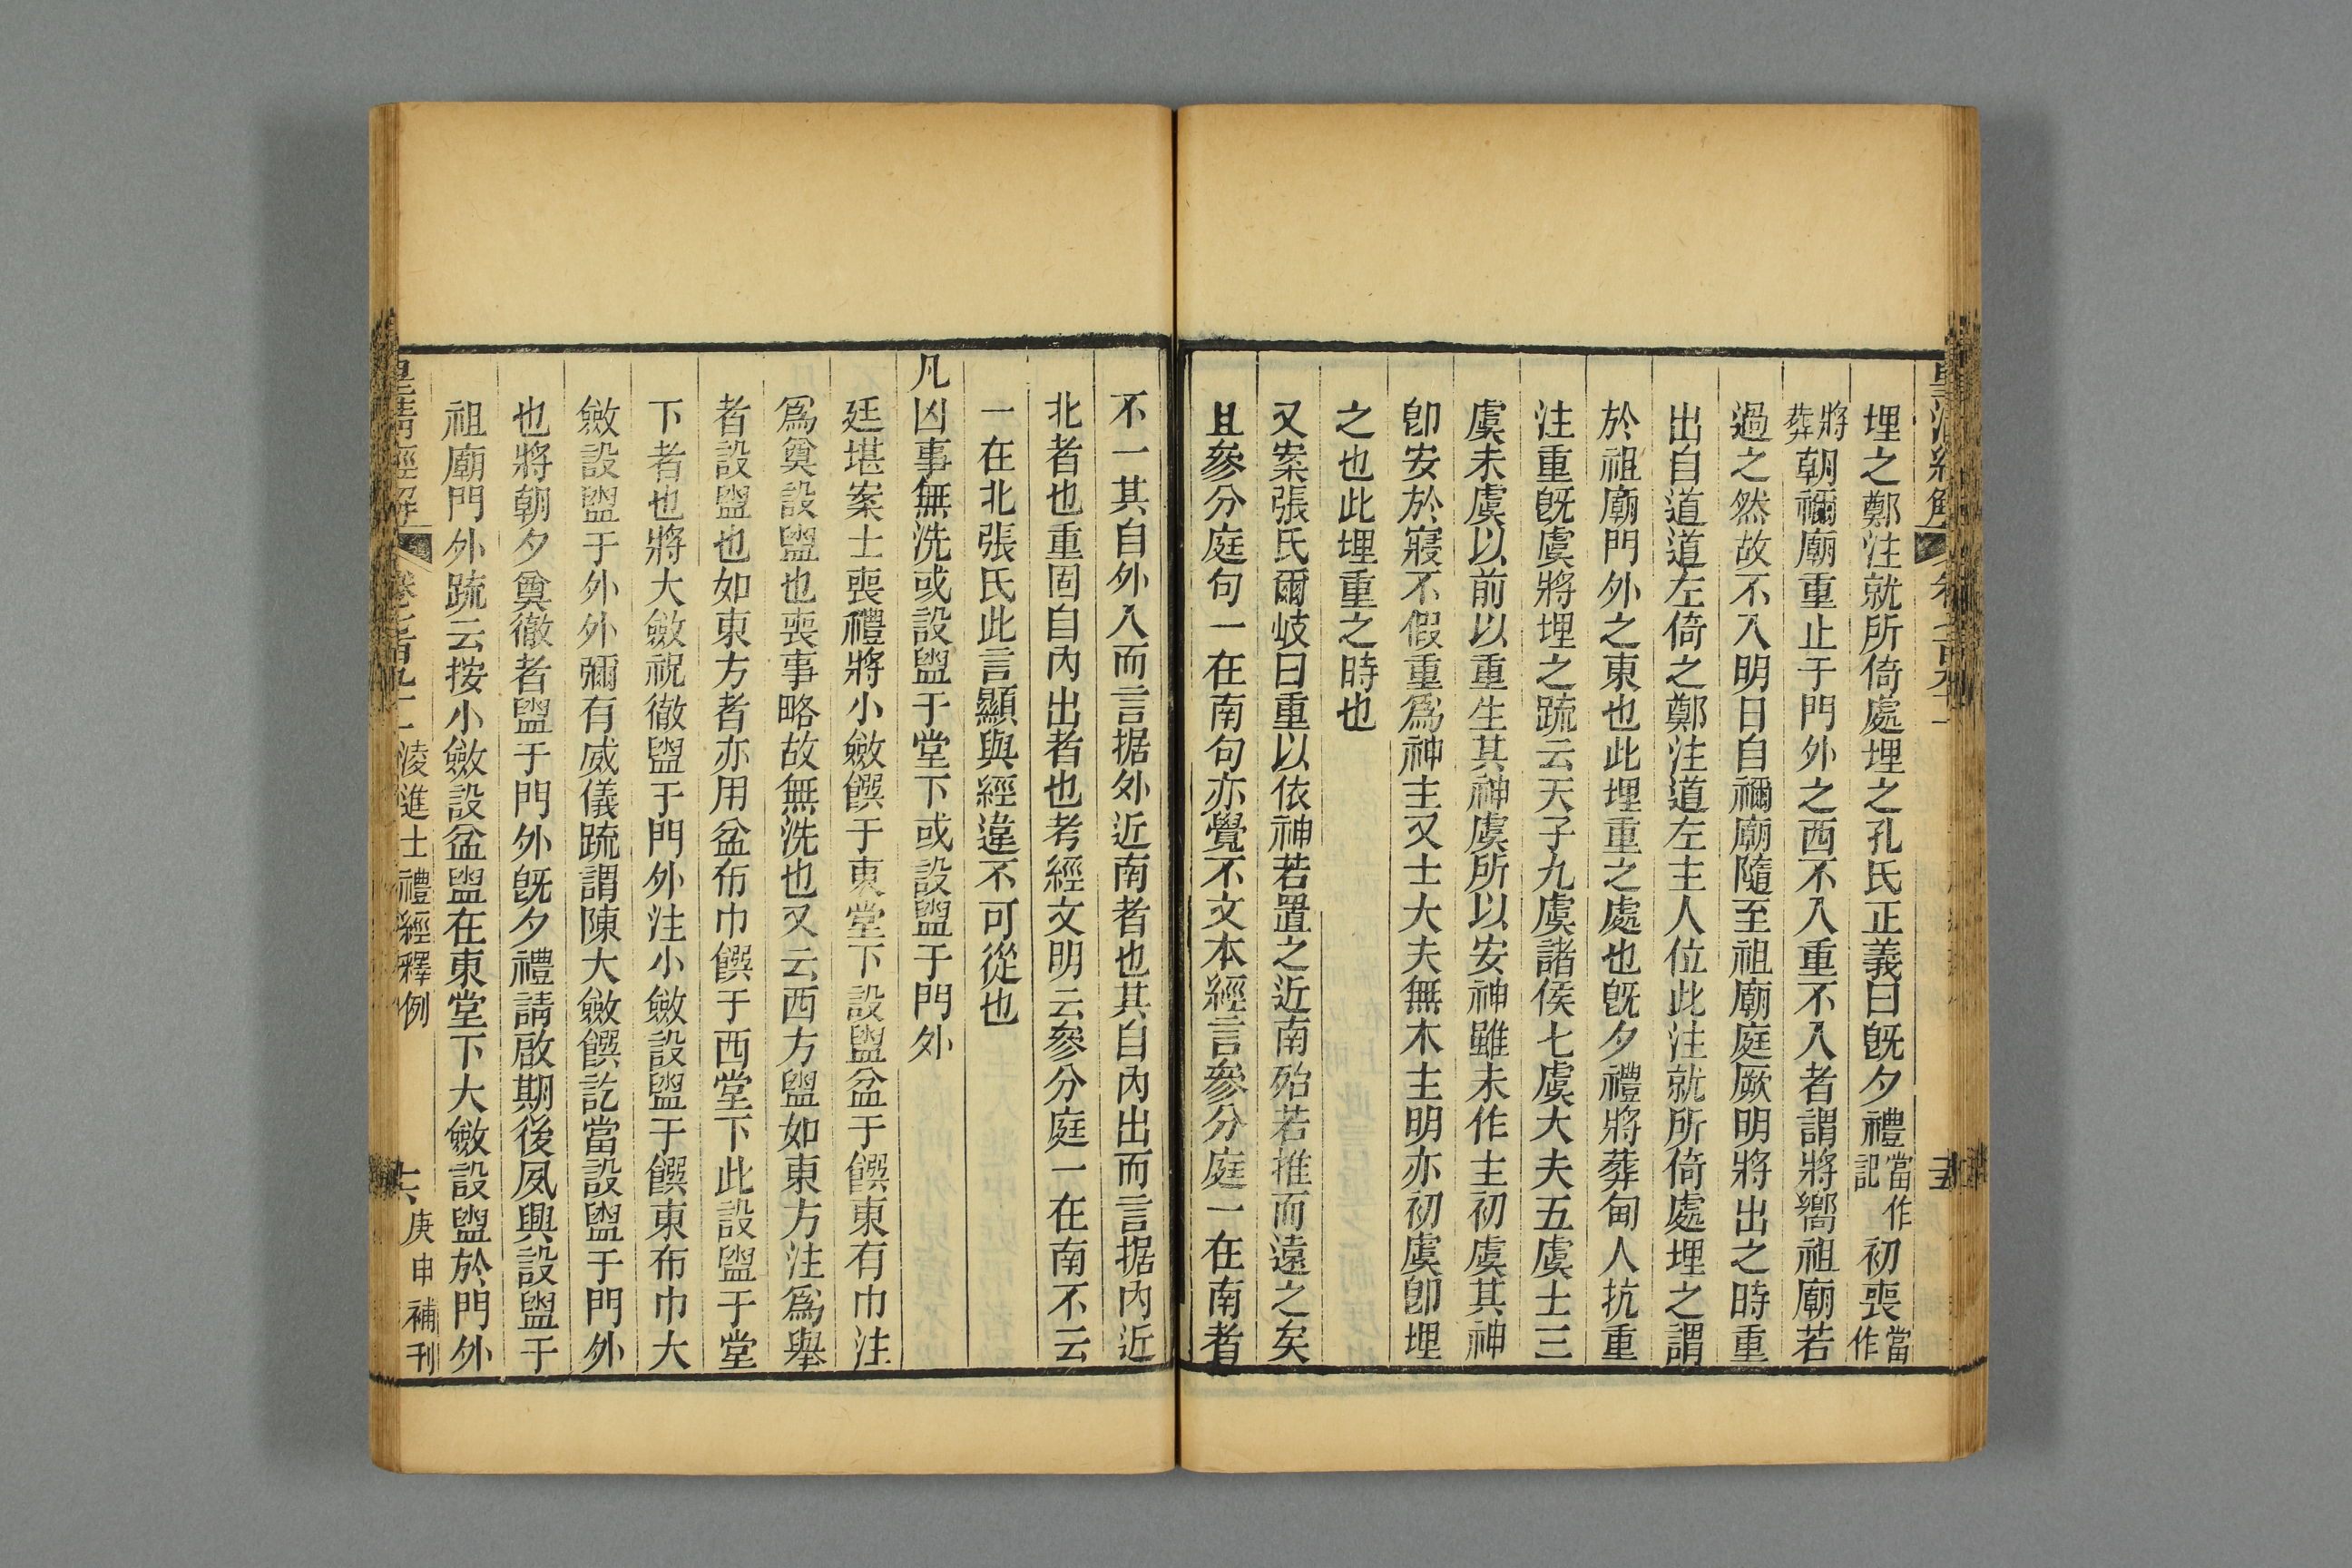 埋之鄭注就所倚處埋之孔氏正義曰旣夕禮當作記初喪當作
將葬朝禰廟重止于門外之西不入重不入者謂將嚮祖廟若
過之然故不入明日自禰廟隨至祖廟庭厥明將出之時重
出自道道左倚之鄭注道左主人位此注就所倚處埋之謂
於祖廟門外之東也此埋重之處也旣夕禮將葬甸人抗重
注重旣虞將埋之疏云天子九虞諸侯七虞大夫五虞士三
虞未虞以前以重生其神虞所以安神雖未作主初虞其神
卽安於寢不假重爲神主又士大夫無木主明亦初虞卽埋
之也此埋重之時也
又案張氏爾岐曰重以依神若置之近南殆若推而遠之矣
且參分庭句一在南句亦覺不文本經言參分庭一在南者
不一其自外入而言据外近南者也其自內出而言据內近
北者也重固自內出者也考經文明云參分庭一在南不云
一在北張氏此言顯與經違不可從也
凡凶事無洗或設盥于堂下或設盥于門外
廷堪案士喪禮將小斂饌于東堂下設盥盆于饌東有巾注
爲奠設盥也喪事略故無洗也又云西方盥如東方注爲舉
者設盥也如東方者亦用盆布巾饌于西堂下此設盥于堂
下者也將大斂祝徹盥于門外注小斂設盥于饌東布巾大
斂設盥于外外彌有威儀疏謂陳大斂饌訖當設盥于門外
也將朝夕奠徹者盥于門外旣夕禮請啟期後夙興設盥于
祖廟門外疏云按小斂設盆盥在東堂下大斂設盥於門外
皇清經解 卷七百九十一 淩進士禮經釋例 庚申補刊